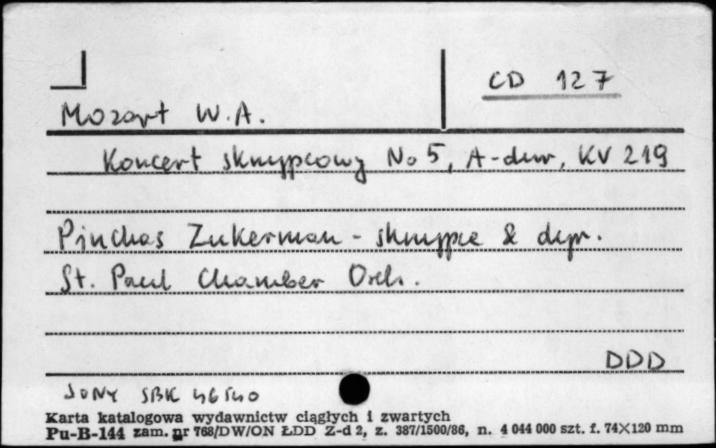 CD 127
Mozart W.A.
Koncert skrzypcowy No 5, A-dur, KV 219
Pinchas Zukerman - skrzypce & dyr.
St. Paul Chamber Orch.
DDD
SONY SBK 46540
Karta katalogowa wydawnictw ciągłych i zwartych
Pu-B-144 zam. nr 768/DW/ON ŁDD Z-d 2, z. 387/1500/86, n. 4 044 000 szt. f. 74×120 mm